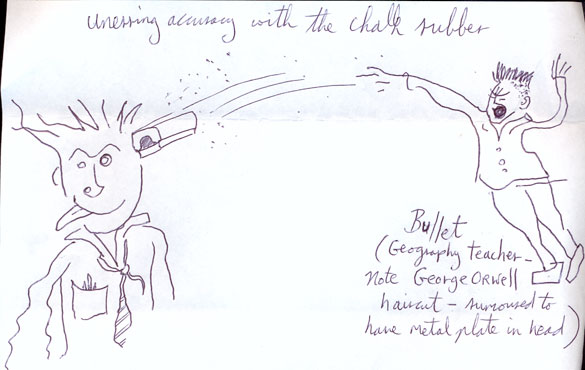 unerring accuracy with the chalk rubber
Bullet
(Geography teacher –
Note George Orwell
haircut – rumoured to
have metal plate in head)